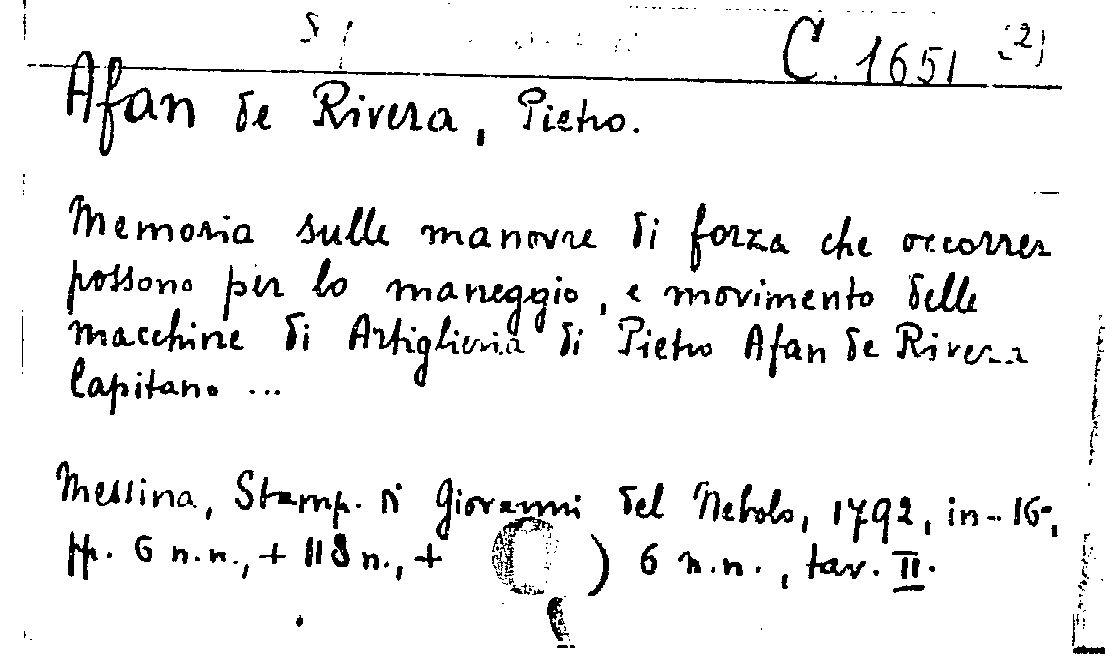 C. 1651 (2)
Afan de Rivera, Pietro.
Memoria sulle manovre di forza che occorrer
possono per lo maneggio, e movimento delle
macchine di Artiglieria di Pietro Afan de Rivera
Capitano ...
Messina, Stamp. di Giovanni del Nobolo, 1792, in-16°,
pp. 6 n.n., + 118 n., + ) 6 n.n., tav. II.